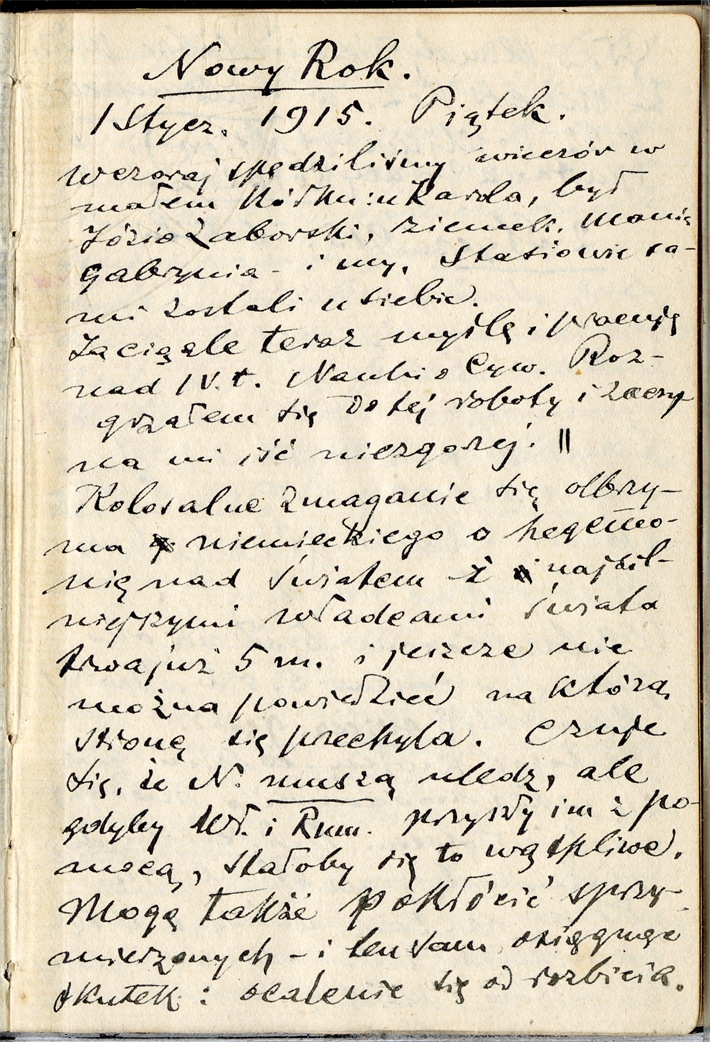 Nowy Rok.
1 Stycz. 1915. Piątek.
wczoraj spędziliśmy wieczór w
małem Kółku: u Karola, był
Józio Zaborski, Ziemek, Mania
Gabrynia - i my. Stasiowie sa-
mi zostali u siebie.
Ja ciągle teraz myślę i pracuję
nad IV. t. Nauki o Cyw. Roz-
grzałem się do tej roboty i zaczy
na mi iść niezgorzej. ||
Kolosalne zmaganie się olbrzy-
ma niemieckiego o hegemo-
nię nad światem z najsil-
niejszymi władcami świata
trwa już 5 m. i jeszcze nie
można powiedzieć na którą
stronę się przechyla. Czuje
się, że N. muszą uledz, ale
gdyby Wł. i Rum. przyszły im z po-
mocą, stałoby się to wątpliwe.
Mogą także pokłócić sprzy-
mierzonych - i ten sam osiągnąć
skutek: ocalenie się od rozbicia.